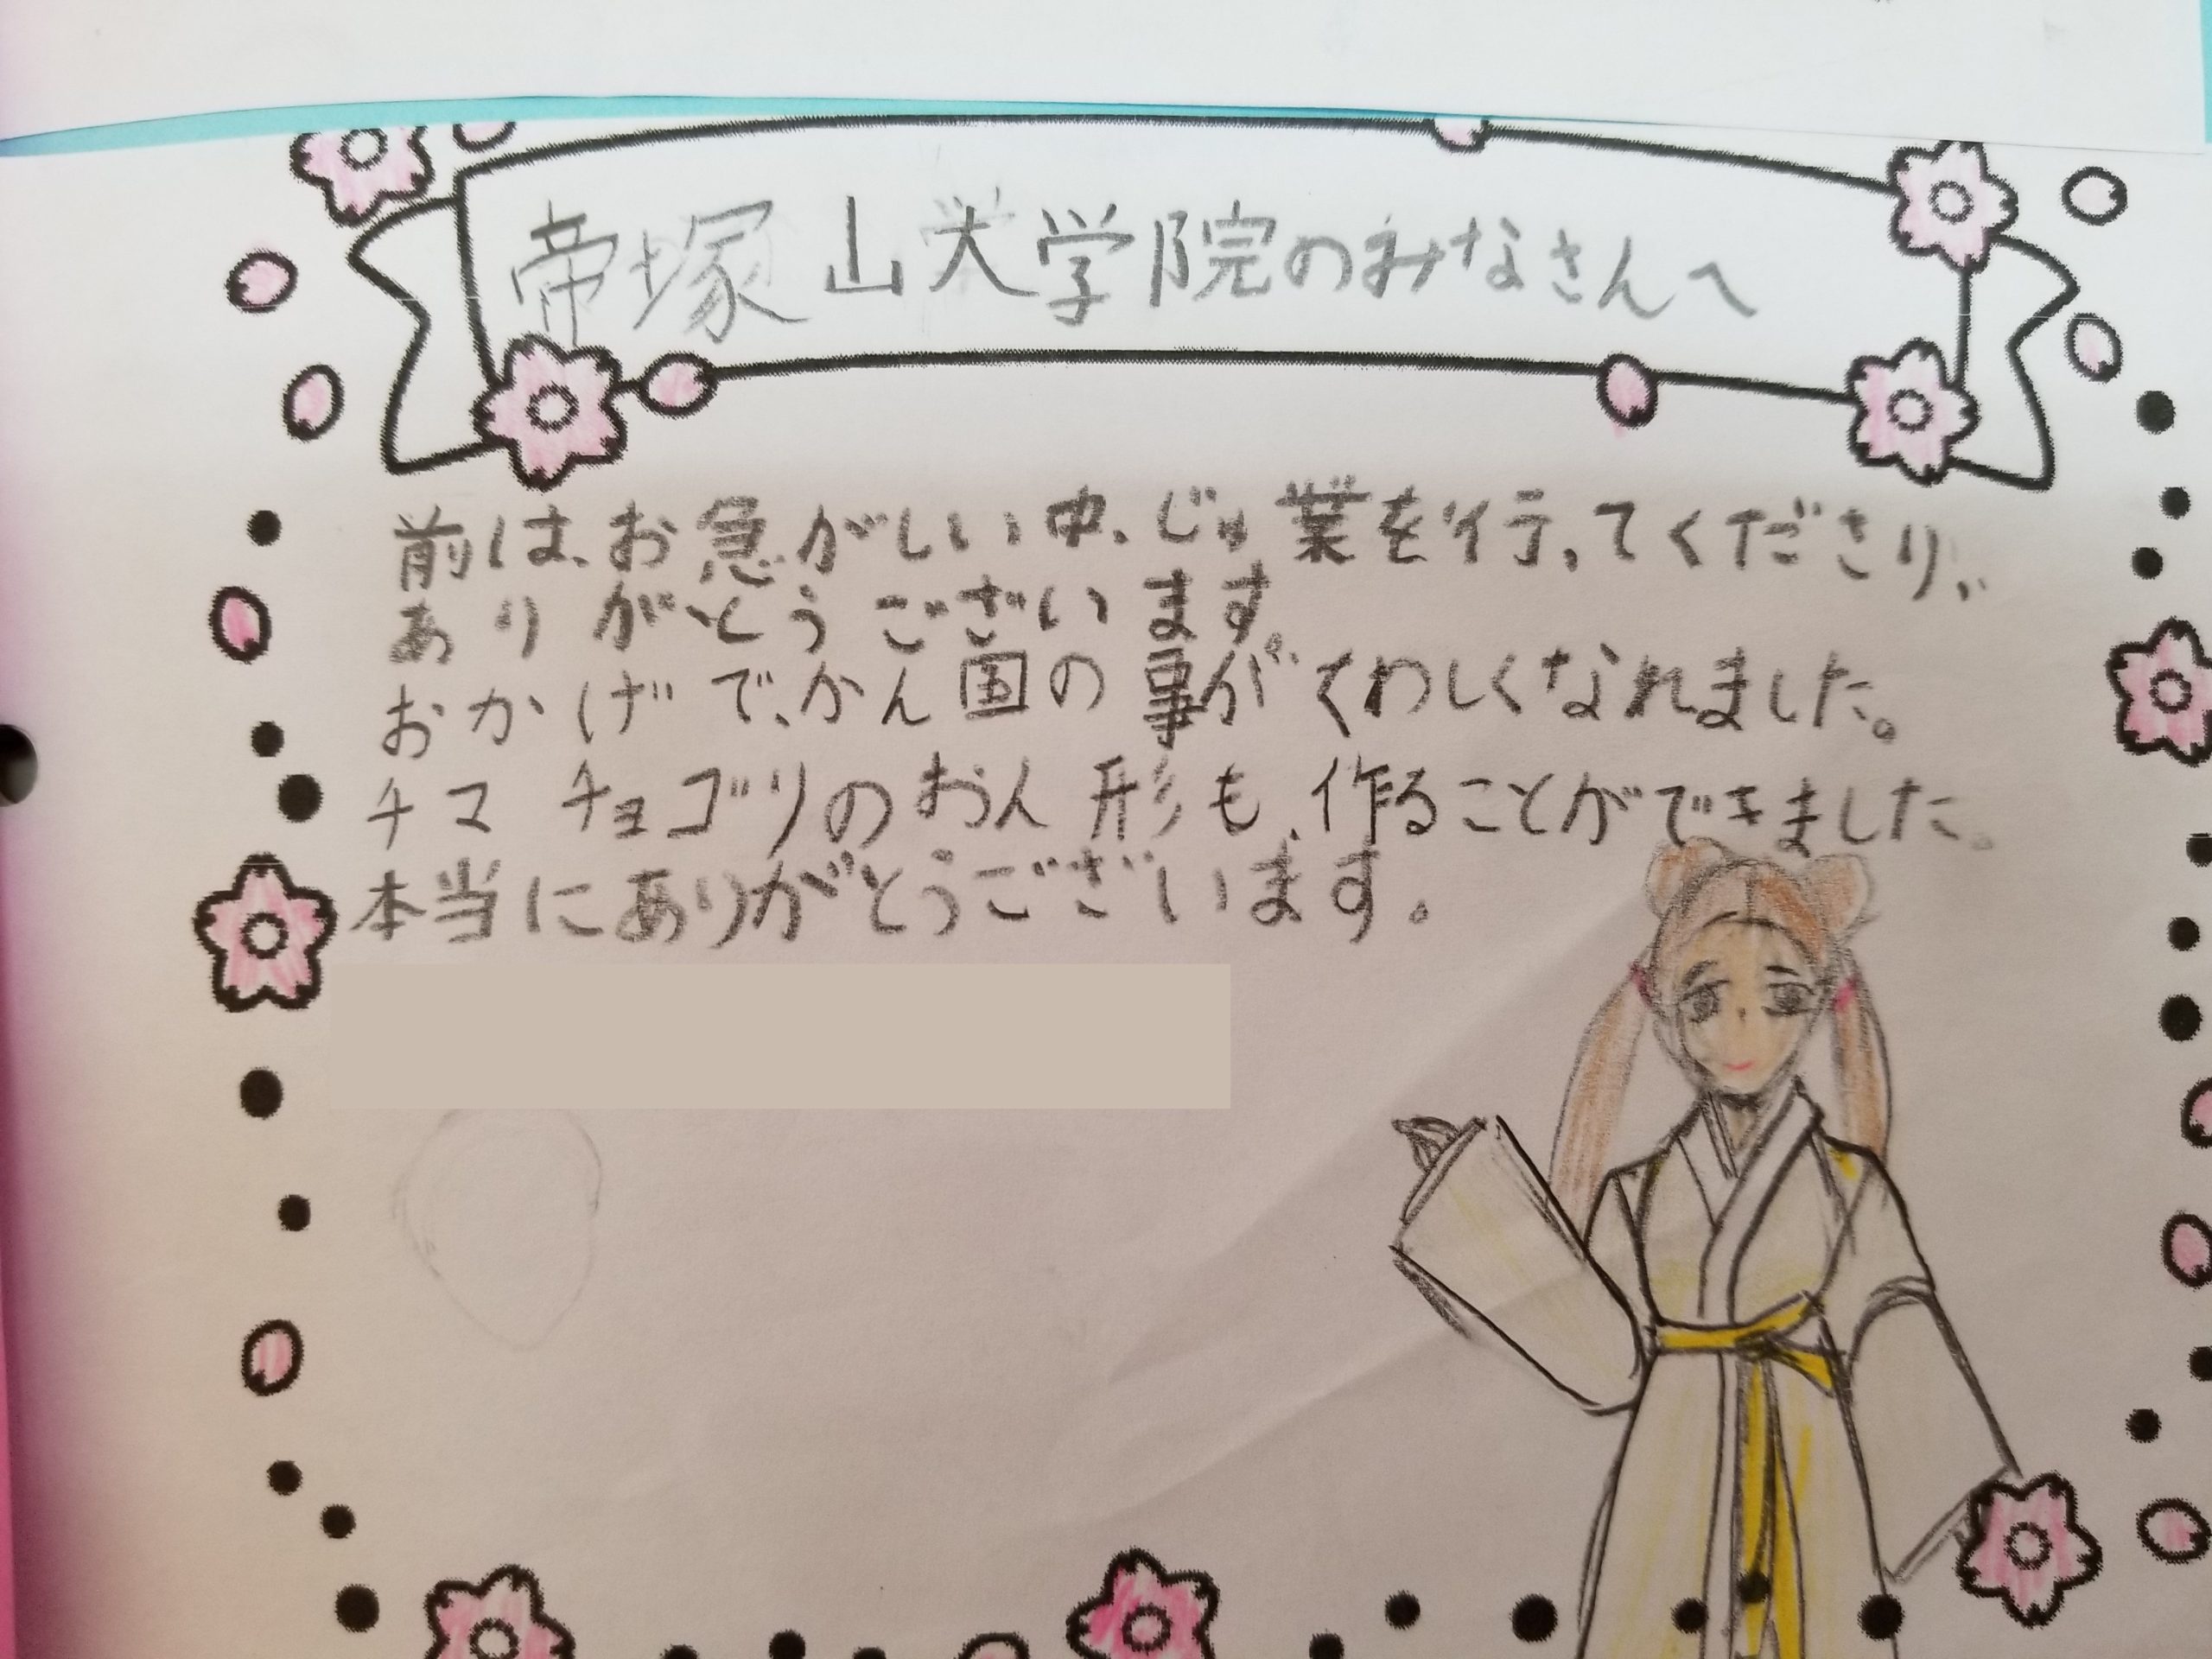 帝塚山大学院のみなさんへ
前は、お急がしい中、じゅ業を行ってくださり、
ありがとうございます。
おかげで、かん国の事がくわしくなれました。
チマチョゴリのお人形も、作ることができました。
本当にありがとうございます。